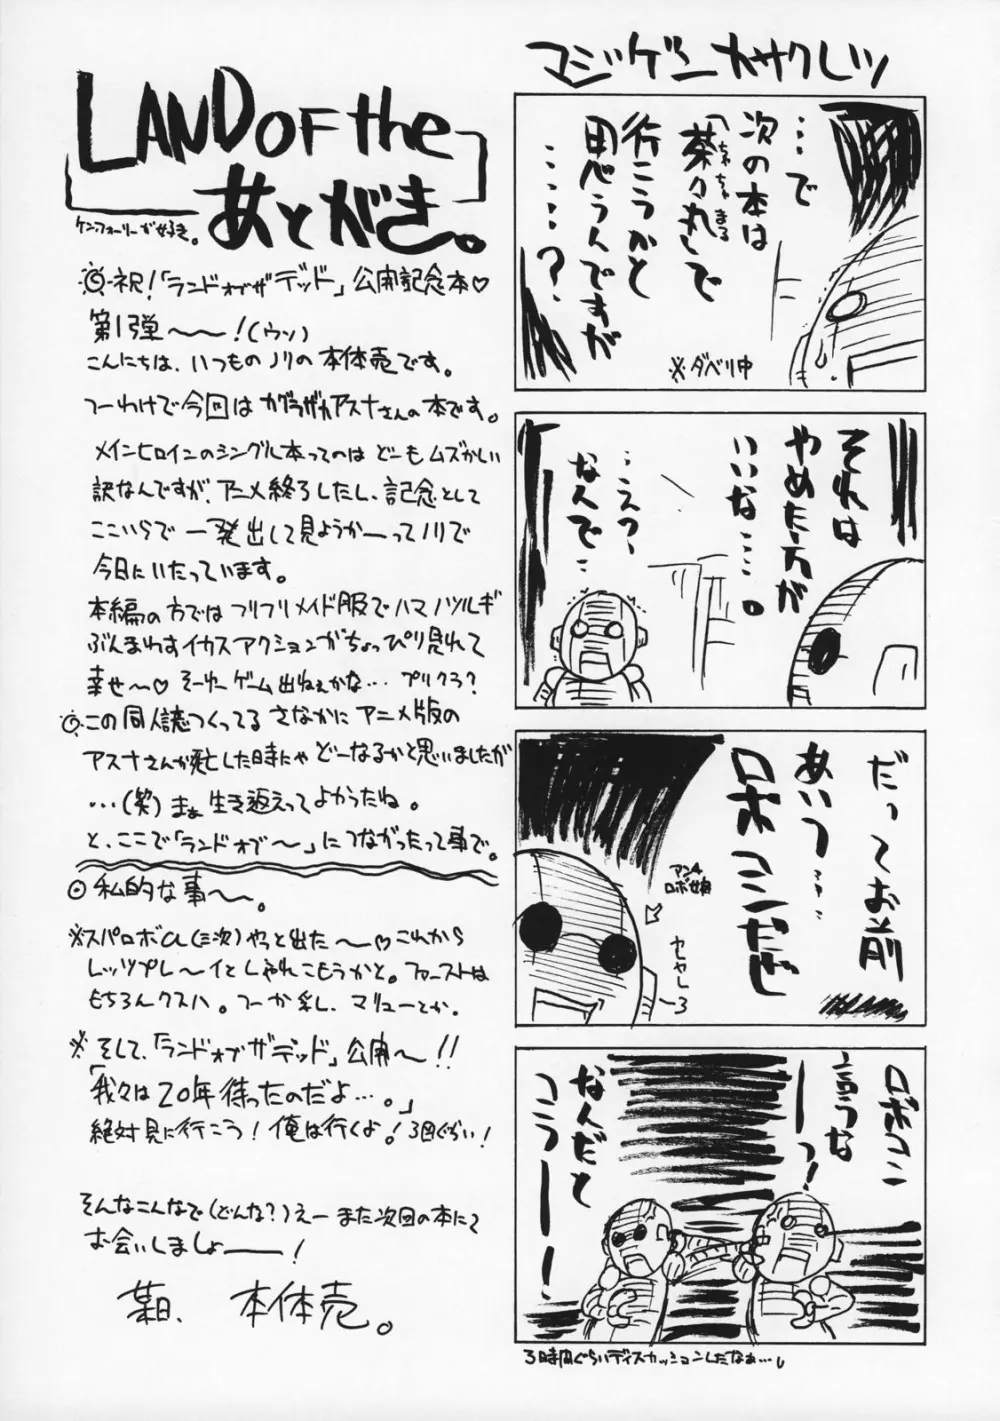 LAND OF the
あとがき。
ケン・フォーリーが好き。
◎祝!「ランドオブザデッド」公開記念本♡
第1弾〜〜!(ウソ)
こんにちは、いつものノリの本体売です。
つーわけで今回はカグラザカアスナさんの本です。
メインヒロインのシングル本ってのはどーもムズかしい
訳なんですが、アニメ終了したし、記念として
ここいらで一発出して見ようかーってノリで
今日にいたっています。
本編の方ではフリフリメイド服でハマノツルギ
ぶんまわすイカスアクションがちょっぴり見れて
幸せ〜♡そーゆーゲーム出ねぇかな…プリクラ?
◎この同人誌つくってるさなかにアニメ版の
アスナさんが死亡した時にゃどーなるかと思いましたが
…(笑)まぁ生き返えってよかったね。
と、ここで「ランドオブ〜」につながったって事で。
◎私的な事〜。
※スパロボα(三次)やっと出た〜♡これから
レッツプレ〜イとしゃれこもうかと。ファーストは
もちろんクスハ。つーか乳し、マリューとか。
※そして、「ランドオブザデッド」公開〜!!
「我々は20年待ったのだよ…。」
絶対見に行こう!俺は行くよ!3回ぐらい!
そんなこんなで(どんな?)えーまた次回の本にて
お会いしましょーー!
某日、本体売。
マジゲンカサクレツ
…で
次の本は
「茶々丸」で
ちゃちゃまる
行こうかと
思うんですが
……?
※ダベリ中
それは
やめた方が
いいな…。
…えっ、
なんで…
だってお前
あいつ…
ロボコンだぜ
アンチ
ロボ娘
ロボコン
言うな
ーーっ!
なんだと
コラーー!
3時間ぐらいディスカッションしたなぁ…。